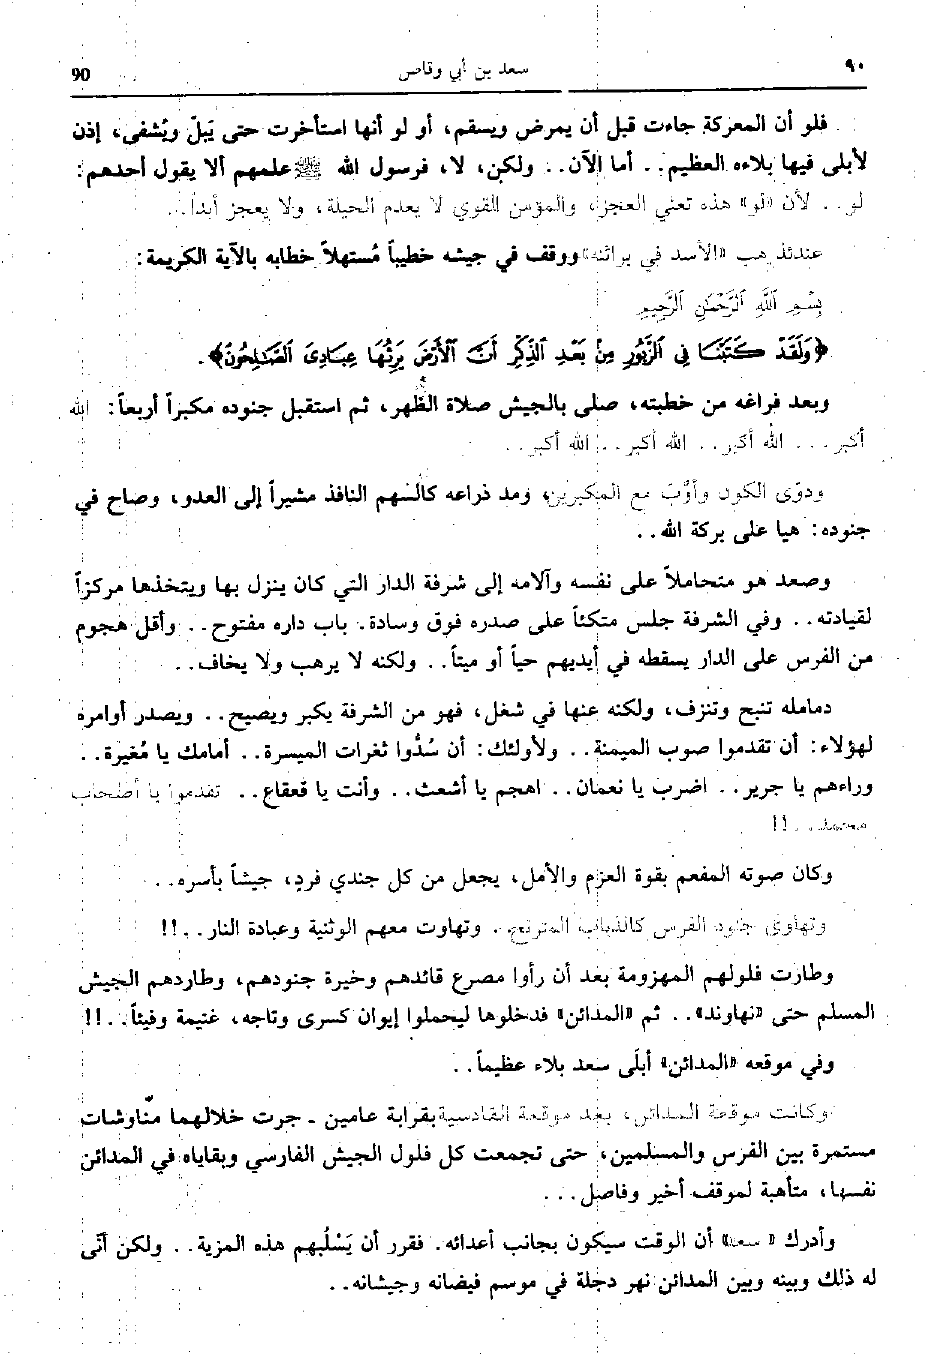 ٩٠ سعد بن أبي وقاص 90
فلو أن المعركة جاءت قبل أن يمرض ويسقم، أو لو أنها استأخرت حتى يَبلّ ويُشفى، إذن
لأبلى فيها بلاءه العظيم.. أما الآن.. ولكن، لا، فرسول الله ﷺ علمهم ألا يقول أحدهم:
لو.. لأن «لو» هذه تعني العجز، والمؤمن القوي لا يعدم الحيلة، ولا يعجز أبداً..
عندئذ هب «الأسد في براثنه» ووقف في جيشه خطيباً مُستهلاً خطابه بالآية الكريمة:
بِسْمِ اللَّهِ الرَّحْمَٰنِ الرَّحِيمِ
﴿وَلَقَدْ كَتَبْنَا فِي الزَّبُورِ مِنْ بَعْدِ الذِّكْرِ أَنَّ الْأَرْضَ يَرِثُهَا عِبَادِيَ الصَّالِحُونَ﴾.
وبعد فراغه من خطبته، صلى بالجيش صلاة الظُهر، ثم استقبل جنوده مكبراً أربعاً: الله
أكبر... الله أكبر.. الله أكبر.. الله أكبر..
ودوّى الكون وأوَّبَ مع المكبرين، ومد ذراعه كالسهم النافذ مشيراً إلى العدو، وصاح في
جنوده: هيا على بركة الله..
وصعد هو متحاملاً على نفسه وآلامه إلى شرفة الدار التي كان ينزل بها ويتخذها مركزاً
لقيادته.. وفي الشرفة جلس متكئاً على صدره فوق وسادة. باب داره مفتوح.. وأقل هجوم
من الفرس على الدار يسقطه في أيديهم حياً أو ميتاً.. ولكنه لا يرهب ولا يخاف..
دمامله تنبح وتنزف، ولكنه عنها في شغل، فهو من الشرفة يكبر ويصيح.. ويصدر أوامره
لهؤلاء: أن تقدموا صوب الميمنة.. ولأولئك: أن سُدُّوا ثغرات الميسرة.. أمامك يا مُغيرة..
وراءهم يا جرير.. اضرب يا نعمان.. اهجم يا أشعث.. وأنت يا قعقاع.. تقدموا يا أصحاب
محمد..!!
وكان صوته المفعم بقوة العزم والأمل، يجعل من كل جندي فردٍ، جيشاً بأسره..
وتهاوى جنود الفرس كالذباب المترنح. وتهاوت معهم الوثنية وعبادة النار..!!
وطارت فلولهم المهزومة بعد أن رأوا مصرع قائدهم وخيرة جنودهم، وطاردهم الجيش
المسلم حتى «نهاوند».. ثم «المدائن» فدخلوها ليحملوا إيوان كسرى وتاجه، غنيمة وفيئاً..!!
وفي موقعه «المدائن» أبلَى سعد بلاء عظيماً..
وكانت موقعة المدائن، بعد موقعة القادسية بقرابة عامين - جرت خلالهما منّاوشات
مستمرة بين الفرس والمسلمين، حتى تجمعت كل فلول الجيش الفارسي وبقاياه في المدائن
نفسها، متأهبة لموقف أخير وفاصل...
وأدرك «سعد» أن الوقت سيكون بجانب أعدائه. فقرر أن يَسْلُبهم هذه المزية.. ولكن أنّى
له ذلك وبينه وبين المدائن نهر دجلة في موسم فيضانه وجيشانه..